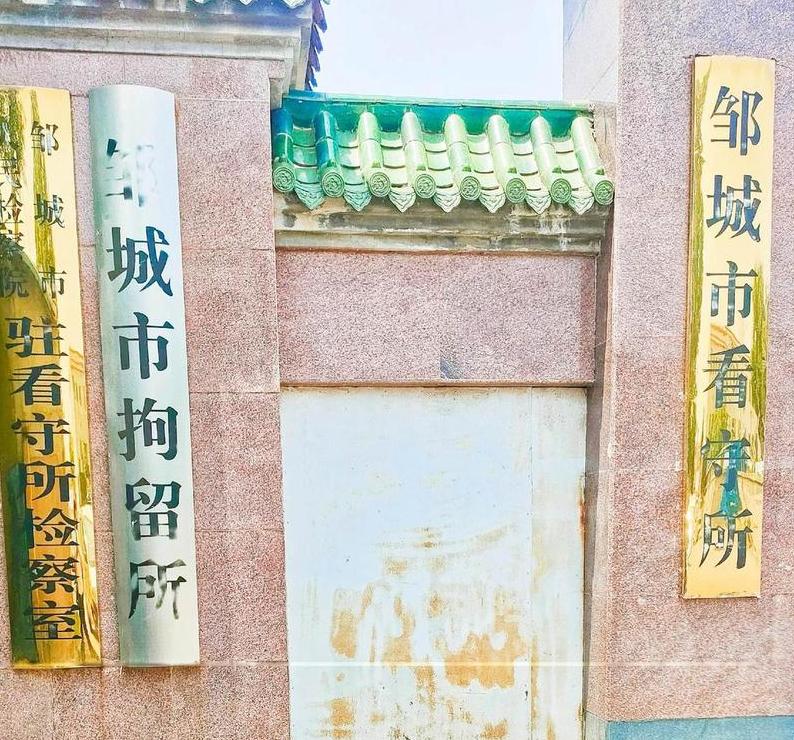 邹城市
人民检察院
驻看守所检察室
邹城市拘留所
邹城市看守所